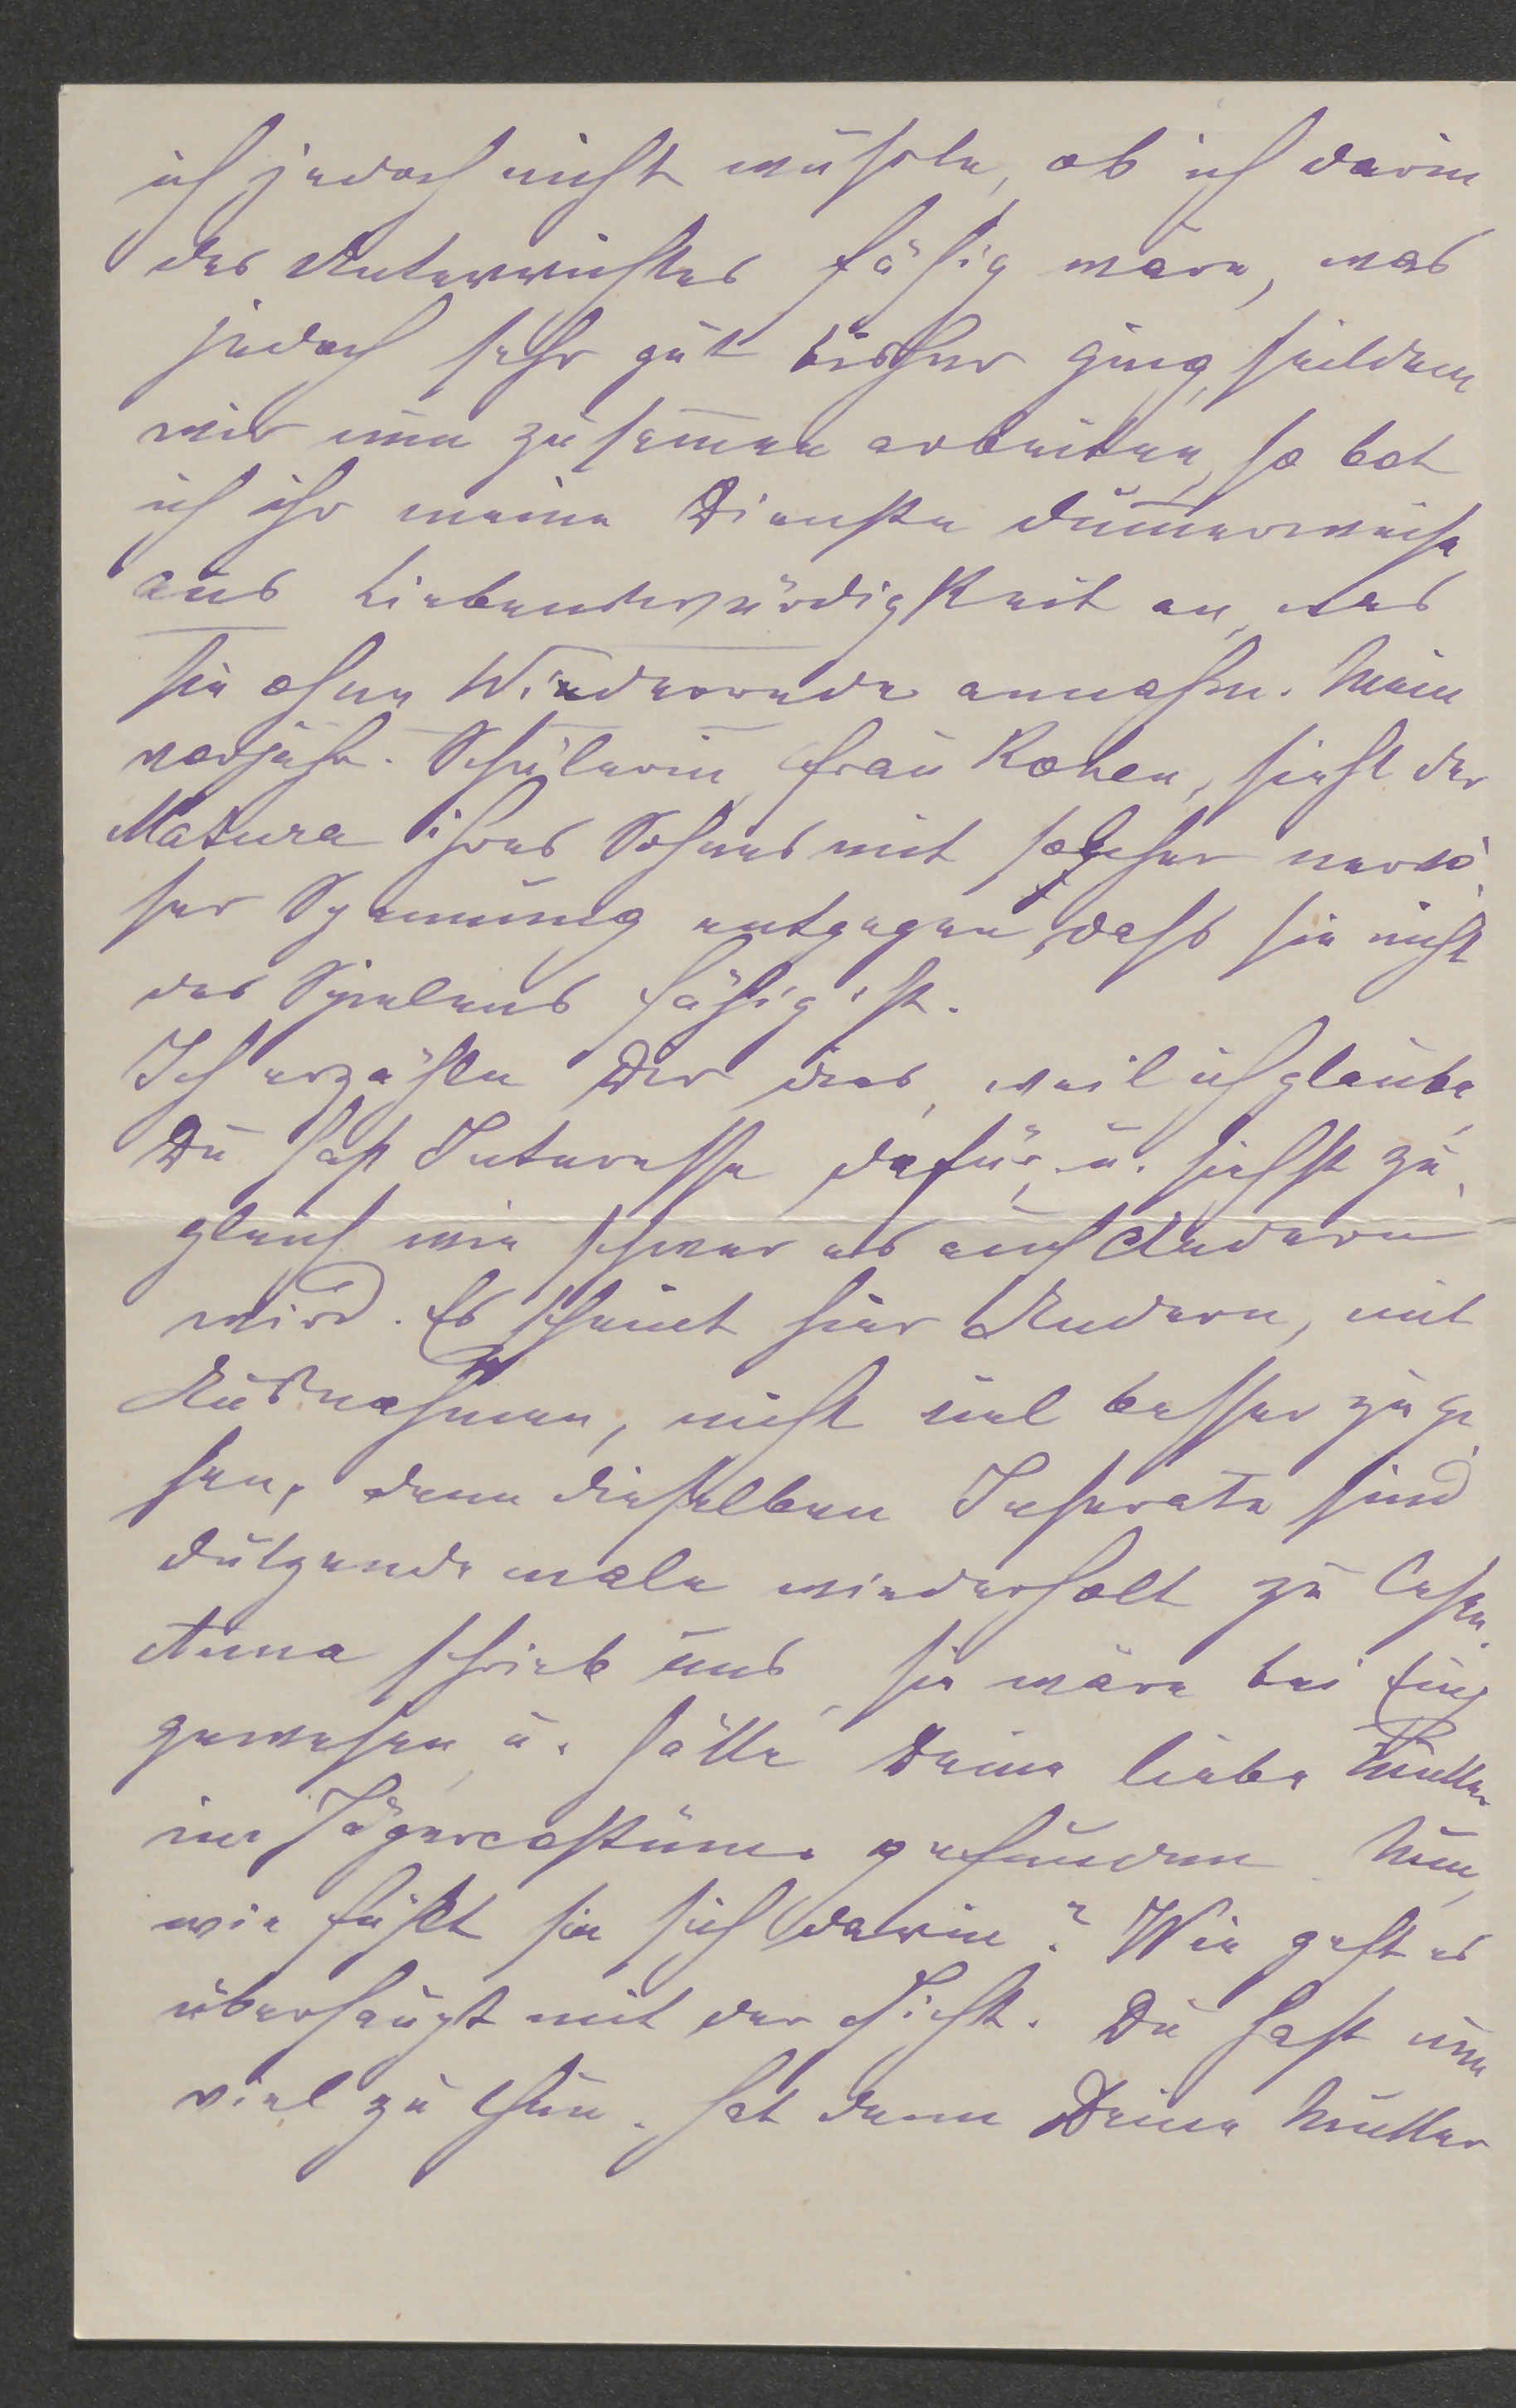 ich jedoch nicht wußte, ob ich darin
des Unterrichtes fähig wäre, was
jedoch sehr gut bisher ging, seitdem
wir nun zusam̅en arbeiten, so bot
ich ihr meine Dienste dum̅erweise
aus Liebenswürdigkeit an, was
sie ohne Wiederrede annahm. Mein
vorjähr. Schülerin, Frau Kohen, sieht der
Matura ihres Sohnes mit solcher nervö
ser Spannung entgegen, dass sie nicht
des Spielens fähig ist.
Ich erzähle Dir dies, weil ich glaube,
Du hast Interesse dafür, u. siehst zu
gleich wie schwer es auch Andern
wird. Es scheint hier Andern, mit
Ausnahmen, nicht viel besser zu ge
hen, denn dieselben Inserate sind
dutzende male wiederholt zu lesen.
Anna schrieb uns, sie wäre bei Euch
gewesen, u. hätte Deine liebe Mutter
im Jägercostüme gefunden. Nun,
wie fühlt sie sich darin? Wie geht es
überhaupt mit der Gicht. Du hast nun
viel zu thun. Hat denn Deine Mutter